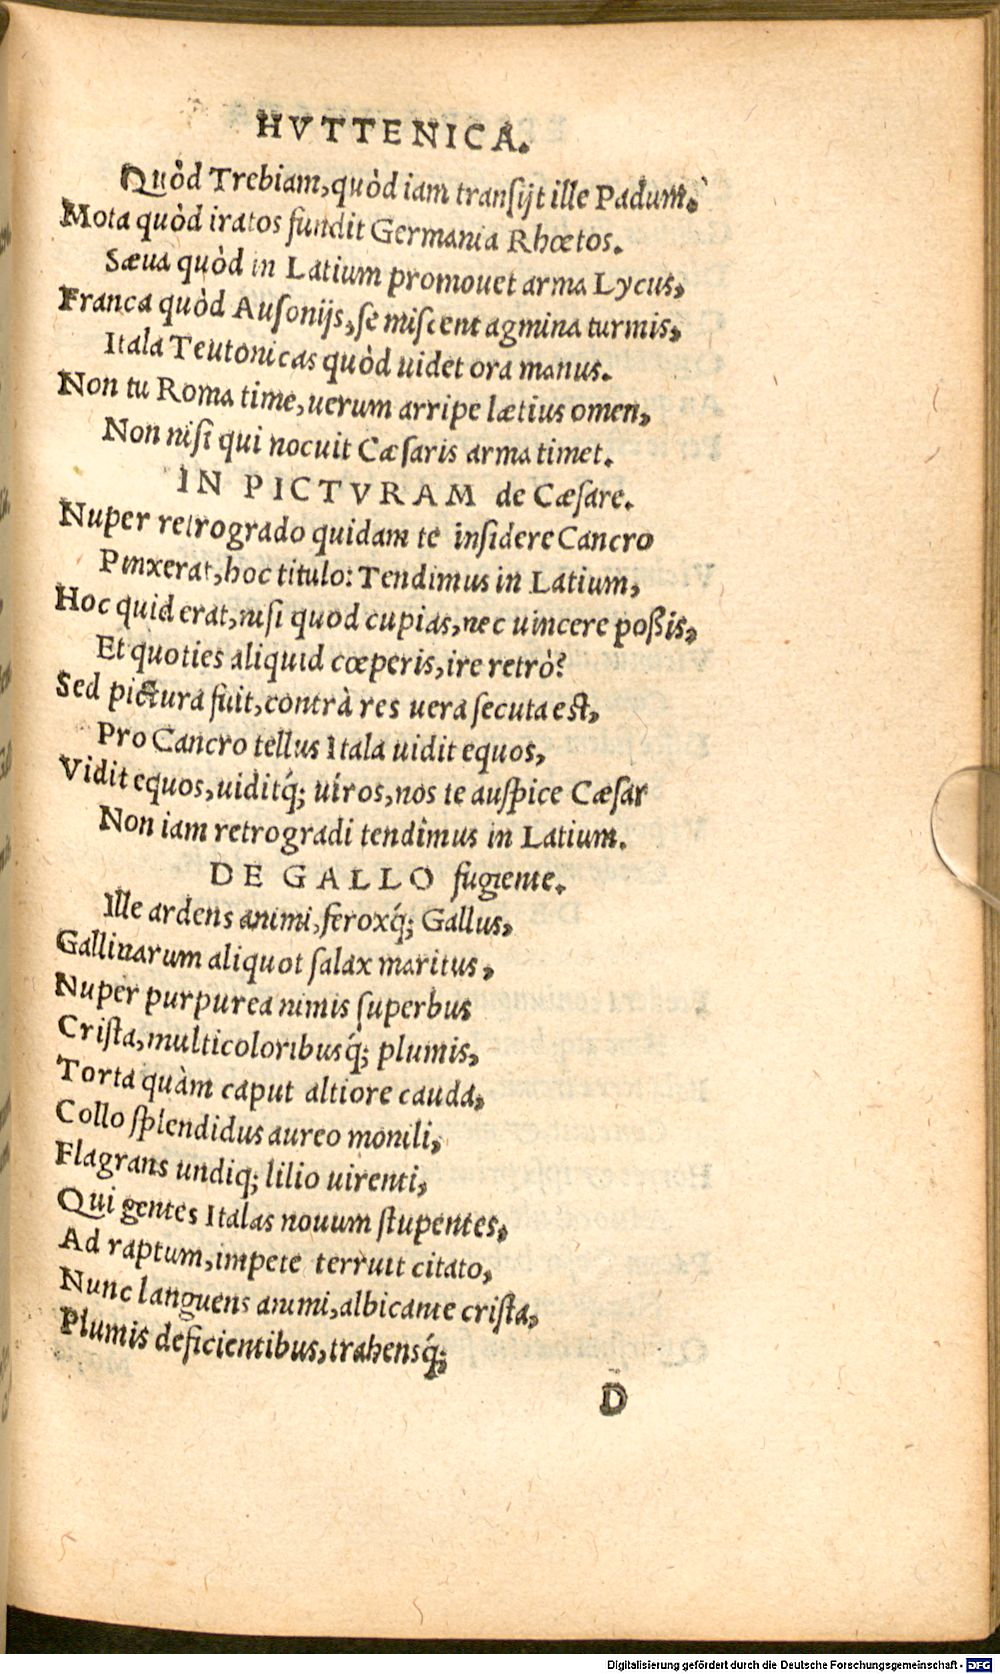 HVTTENICA.
Quòd Trebiam, quòd iam transijt ille Padum.
Mota quòd iratos fundit Germania Rhœtos.
Sæua quòd in Latium promouet arma Lycus,
Franca quòd Ausonijs, se miscent agmina turmis,
Itala Teutonicas quòd uidet ora manus.
Non tu Roma time, uerum arripe lætius omen,
Non nisi qui nocuit Cæsaris arma timet.
IN PICTVRAM de Cæsare.
Nuper retrogrado quidam te insidere Cancro
Pinxerat, hoc titulo: Tendimus in Latium,
Hoc quid erat, nisi quod cupias, nec uincere poßis,
Et quoties aliquid cœperis, ire retrò?
Sed pictura fuit, contrà res uera secuta est,
Pro Cancro tellus Itala uidit equos,
Vidit equos, uiditq́; uiros, nos te auspice Cæsar
Non iam retrogradi tendimus in Latium.
DE GALLO fugiente.
Ille ardens animi, feroxq́; Gallus,
Gallinarum aliquot salax maritus,
Nuper purpurea nimis superbus
Crista, multicoloribusq́; plumis,
Torta quàm caput altiore cauda,
Collo splendidus aureo monili,
Flagrans undiq; lilio uirenti,
Qui gentes Italas nouum stupentes,
Ad raptum, impete terruit citato,
Nunc languens animi, albicante crista,
Plumis deficientibus, trahensq́;
D
Digitalisierung gefördert durch die Deutsche Forschungsgemeinschaft - DFG